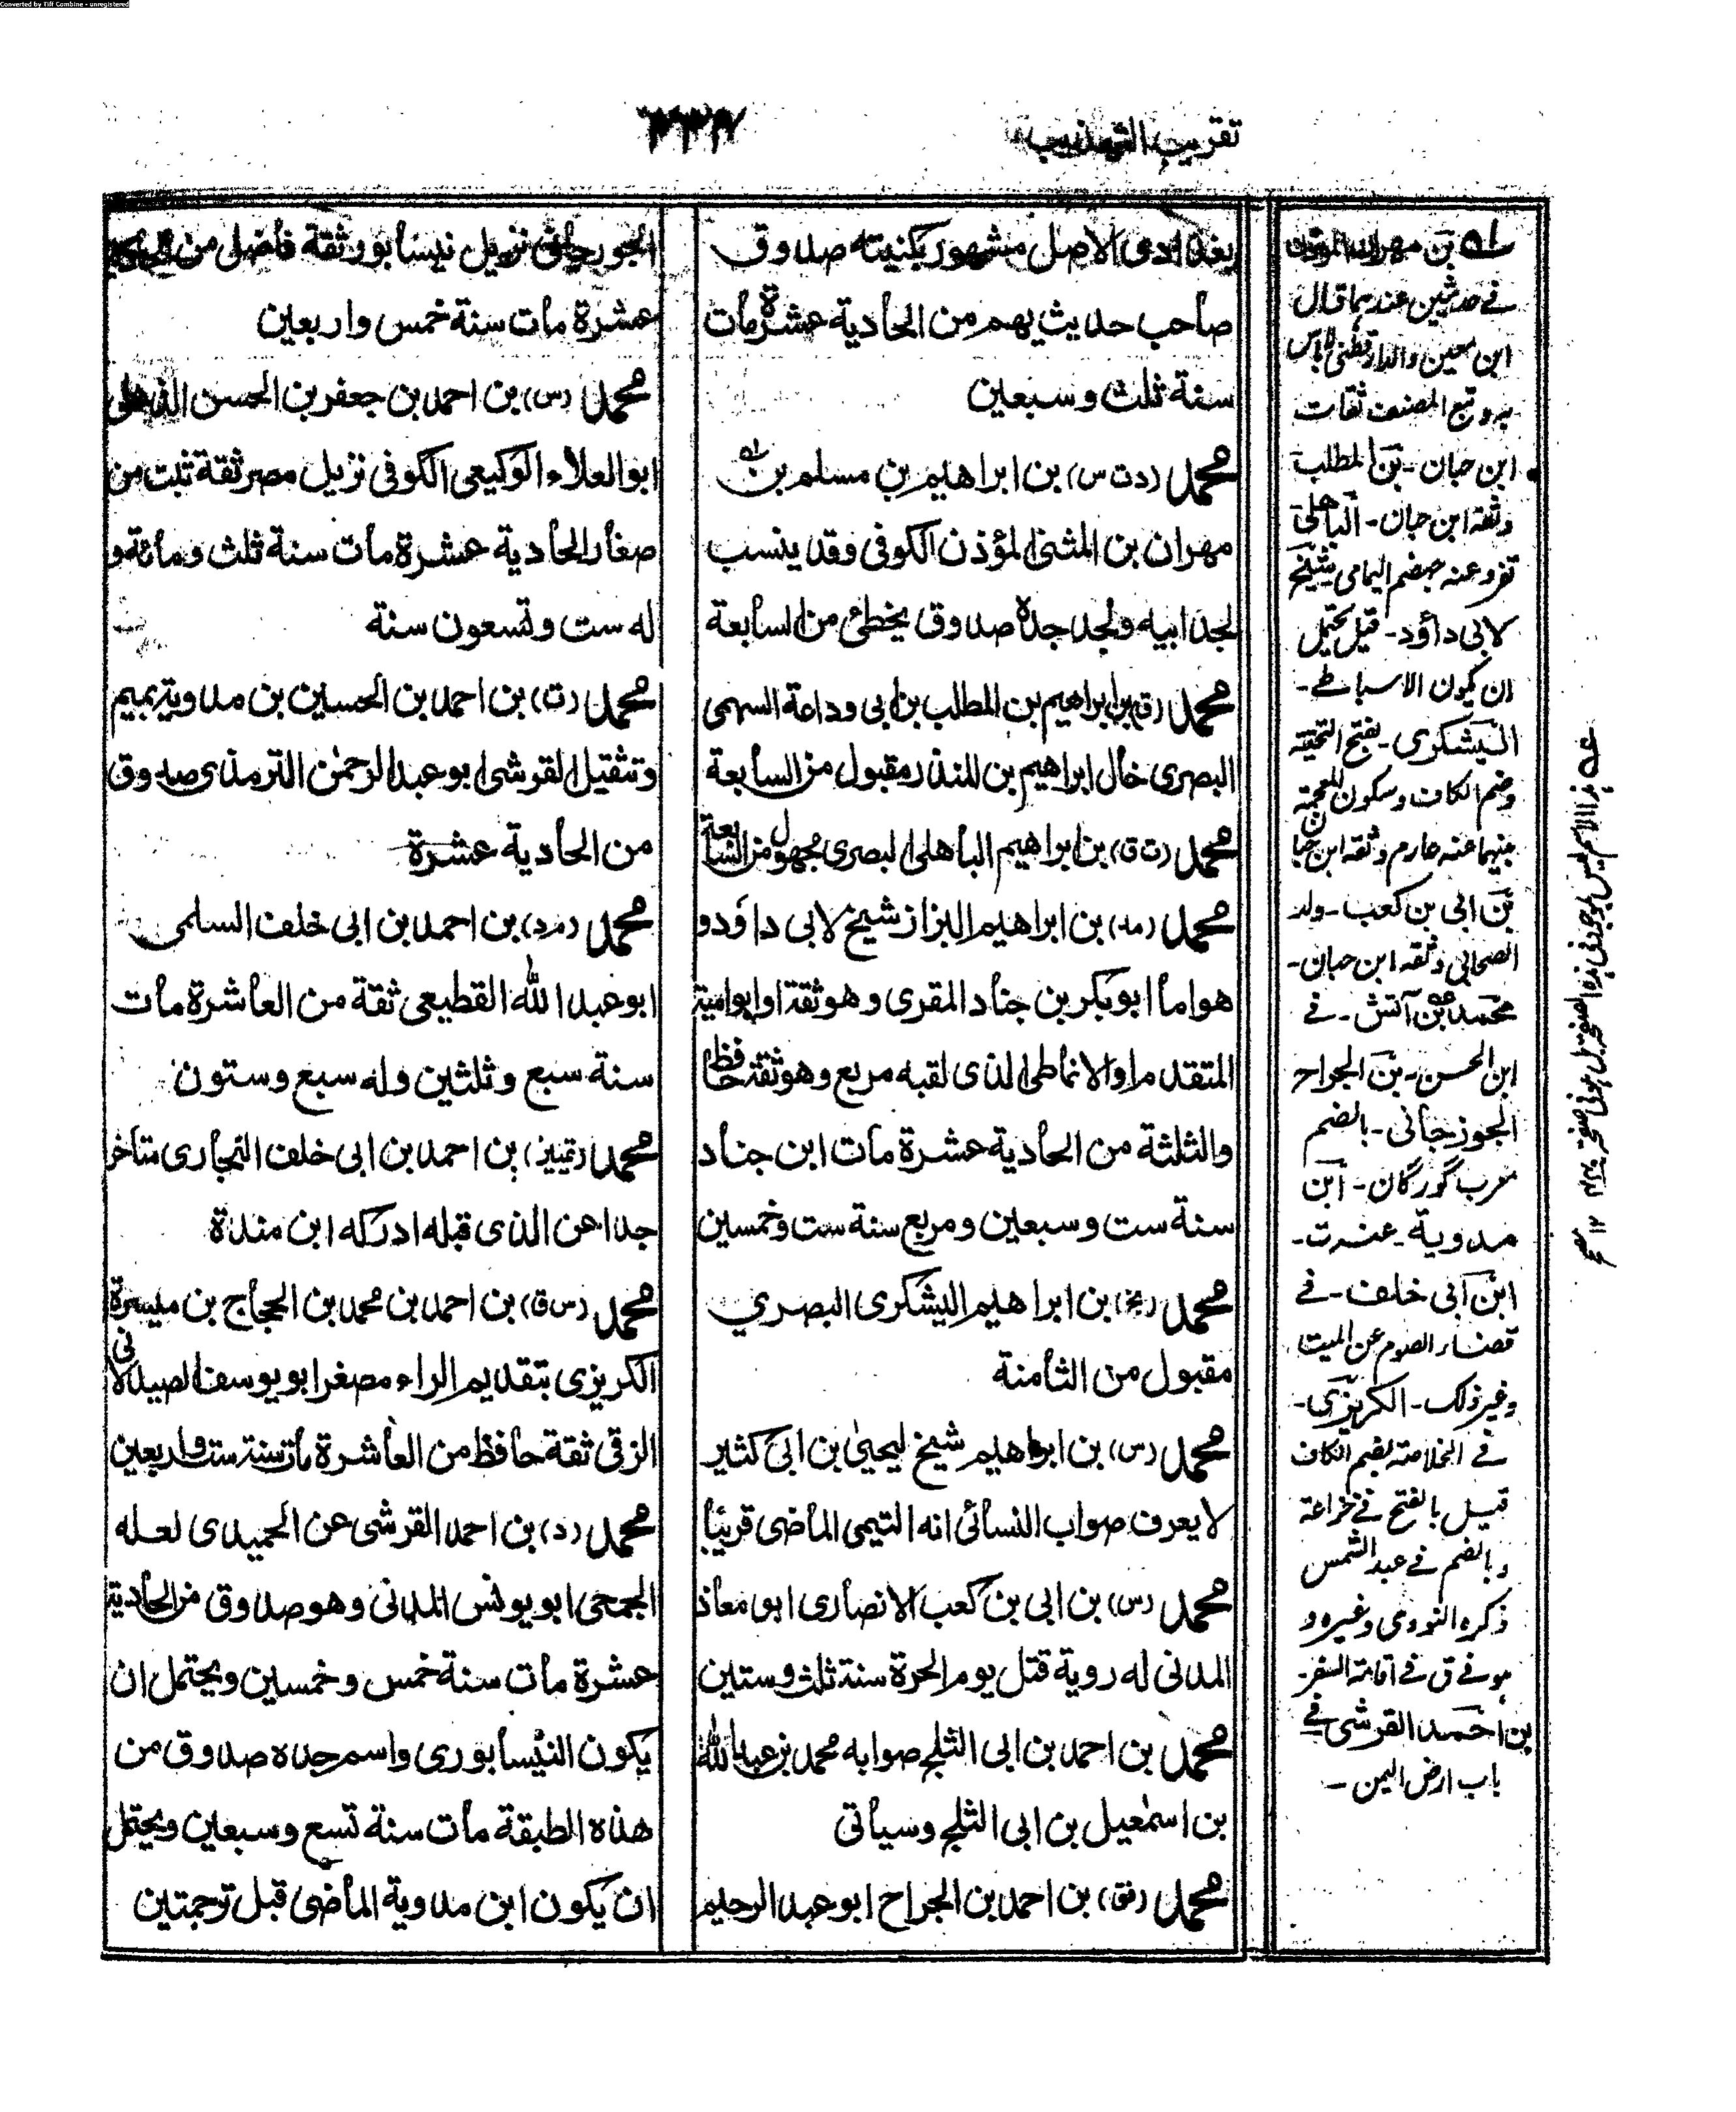 Converted by Tiff Combine - unregistered
تقريب التهذيب
بغدادى الاصل مشهور بكنيته صدوق
صاحب حديث يهم من الحادية عشرة مات
سنة ثلث وسبعين
محمد (دت س) بن ابراهيم بن مسلم بن
مهران بن المثنى المؤذن الكوفى وقد ينسب
لجد ابيه ولجد جده صدوق يخطئ من السابعة
محمد (ق) بن ابراهيم بن المطلب بن ابى وداعة السهمى
البصرى خال ابراهيم بن المنذر مقبول من السابعة
محمد (ت ق) بن ابراهيم الباهلى البصرى مجهول من السابعة
محمد (مد) بن ابراهيم البزاز شيخ لابى داؤد و
هو اما ابو بكر بن جناد المقرى وهو ثقة او ابو امية
المتقدم او الانماطى الذى لقبه مربع وهو ثقة حافظ
والثلثة من الحادية عشرة مات ابن جناد
سنة ست وسبعين ومربع سنة ست وخمسين
محمد (بخ) بن ابراهيم اليشكرى البصري
مقبول من الثامنة
محمد (س) بن ابراهيم شيخ ليحيى بن ابى كثير
لا يعرف صواب النسائى انه التيمى الماضى قريبا
محمد (س) بن ابى بن كعب الانصارى ابو معاذ
المدنى له روية قتل يوم الحرة سنة ثلث وستين
محمد بن احمد بن ابى الثلج صوابه محمد بن عبد الله
بن اسمعيل بن ابى الثلج وسيأتى
محمد (فق) بن احمد بن الجراح ابو عبد الرحيم
الجوزجانى نزيل نيسابور ثقة فاضل من الحادية
عشرة مات سنة خمس واربعين
محمد (س) بن احمد بن جعفر بن الحسن الذهلى
ابو العلاء الوكيعى الكوفى نزيل مصر ثقة ثبت من
صغار الحادية عشرة مات سنة ثلث ومائة و
له ست وتسعون سنة
محمد (ت) بن احمد بن الحسين بن مدوية بميم
وتثقيل القرشى ابو عبد الرحمن الترمذى صدوق
من الحادية عشرة
محمد (م د) بن احمد بن ابى خلف السلمى
ابو عبد الله القطيعى ثقة من العاشرة مات
سنة سبع وثلثين وله سبع وستون
محمد (تمييز) بن احمد بن ابى خلف البخارى متاخر
جدا عن الذى قبله ادركه ابن مندة
محمد (س ق) بن احمد بن محمد بن الحجاج بن ميسرة
الكريزى بتقديم الراء مصغرا ابو يوسف الصيدلانى
الرقى ثقة حافظ من العاشرة مات سنة ست واربعين
محمد (د) بن احمد القرشى عن الحميدى لعله
الجمحى ابو يونس المدنى وهو صدوق من الحادية
عشرة مات سنة خمس وخمسين ويحتمل ان
يكون النيسابورى واسم جده صدوق من
هذه الطبقة مات سنة تسع وسبعين ويحتمل
ان يكون ابن مدوية الماضى قبل ترجمتين
له بن مهران المؤذن
فے حديثين عندهما قال
ابن معين والدارقطنى لا باس
به وتبع المصنف ثقات
ابن حبان - بن المطلب
وثقه ابن حبان - الباهلى
تفرد عنه جهضم اليمامى شيخ
لابى داؤد - قيل يحتمل
ان يكون الاسباطے -
اليشكرى - بفتح التحتية
وضم الكاف وسكون المعجمة
بينهما عنه عارم وثقه ابن حبان
بن ابى بن كعب - ولد
الصحابى وثقه ابن حبان -
محمد بن آتش - فے
ابن الحسن - بن الجراح
الجوزجانى - بالضم
معرب گورگان - ابن
مدوية - عنه ت -
ابن ابى خلف - فے
قضاء الصوم عن الميت
وغير ذلك - الكريزى -
فے الخلاصة بضم الكاف
قيل بالفتح فے خزاعة
وبالضم فے عبد الشمس
ذكره النووى وغيره و
هو فے ق فے اقامة السفر -
بن احمد القرشى فے
باب ارض اليمن -
هذا الاسم ليس بموجود فى هذه الصفحة بل هو فى صفحة